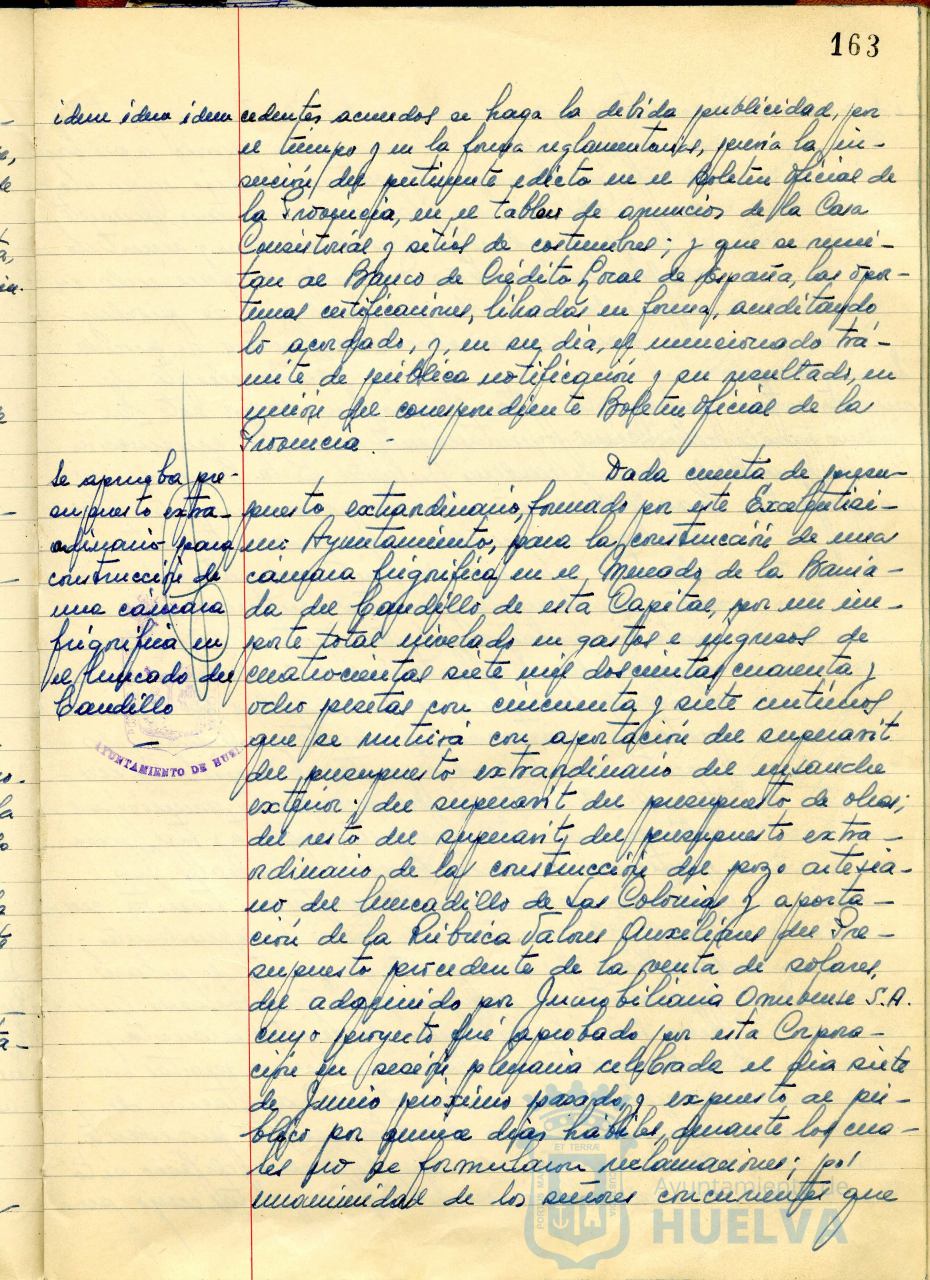 163
idem idem idem
cedentes acuerdos se haga la debida publicidad, por
el tiempo y en la forma reglamentarias, previa la in-
serción del pertinente edicto en el Boletin Oficial de
la Provincia, en el tablon de anuncios de la Casa
Consistorial y sitios de costumbres; y que se remi-
tan al Banco de Crédito Local de España, las opor-
tunas certificaciones, libradas en forma, acreditando
lo acordado, y, en su dia, el mencionado trá-
mite de pública notificación y su resultado, en
unión del correspondiente Boletin Oficial de la
Provincia.-
Se aprueba pre-
supuesto extra-
ordinario para
construcción de
una cámara
frigorifica en
el mercado del
Caudillo
Dada cuenta de presu-
puesto extraordinario, formado por este Excelentisi-
mo Ayuntamiento, para la construcción de una
cámara frigorifica en el Mercado de la Barria-
da del Caudillo de esta Capital, por un im-
porte total nivelado en gastos e ingresos de
cuatrocientas siete mil doscientas cuarenta y
ocho pesetas con cincuenta y siete centimos
que se nutrirá con aportación del superavit
del presupuesto extraordinario del ensanche
exterior; del superavit del presupuesto de obras;
del resto del superavit del presupuesto extra-
ordinario de la construcción del pozo artesia-
no del mercadillo de Las Colonias y aporta-
ción de la Rúbrica Valores Auxiliares del Pre-
supuesto procedente de la venta de solares,
del adquirido por Inmobiliaria Onubense S.A.
cuyo proyecto fué aprobado por esta Corpora-
ción en sesión plenaria celebrada el dia siete
de Junio próximo pasado, y expuesto al pú-
blico por quince dias hábiles, durante los cua-
les no se formularon reclamaciones; por
unanimidad de los señores concurrentes que
AYUNTAMIENTO DE HUE
Ayuntamiento de
HUELVA